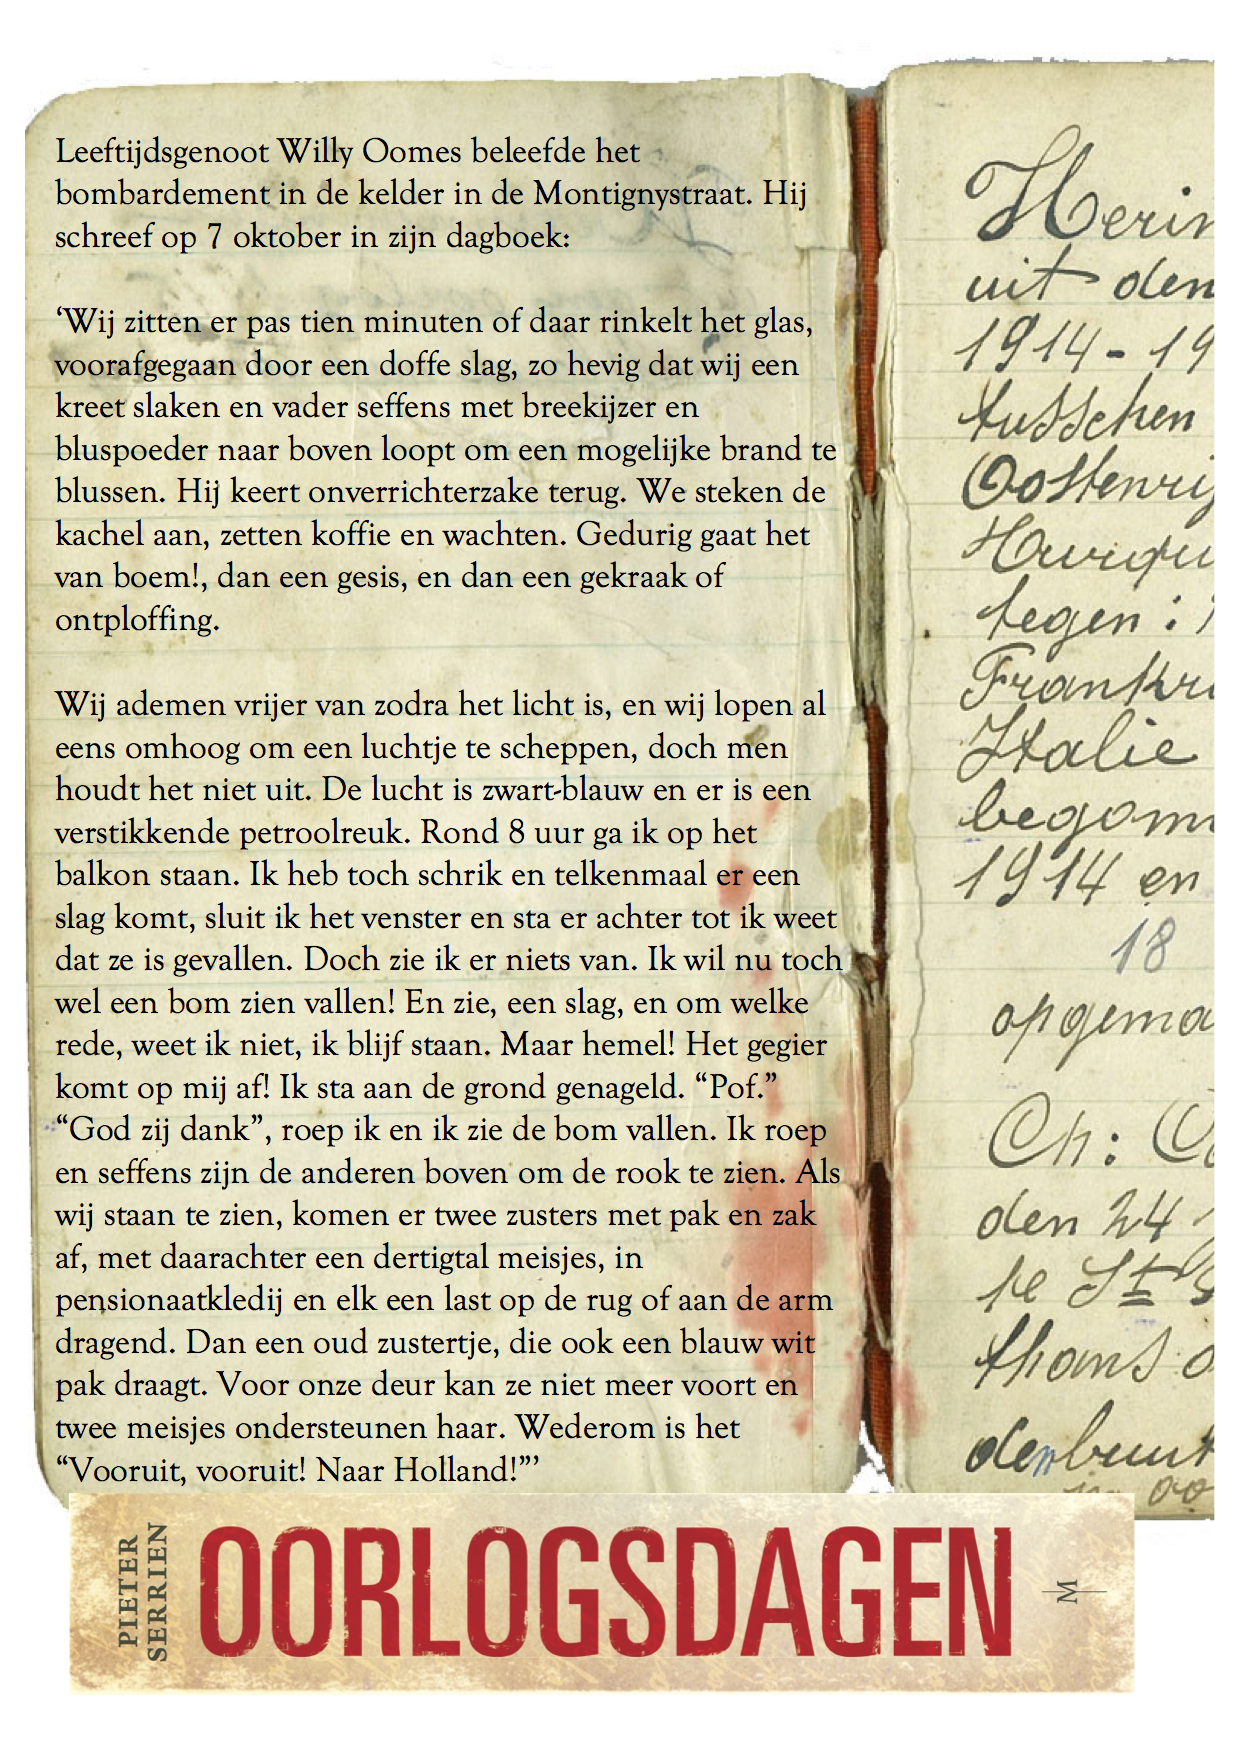 Leeftijdsgenoot Willy Oomes beleefde het
bombardement in de kelder in de Montignystraat. Hij
schreef op 7 oktober in zijn dagboek:
‘Wij zitten er pas tien minuten of daar rinkelt het glas,
voorafgegaan door een doffe slag, zo hevig dat wij een
kreet slaken en vader seffens met breekijzer en
bluspoeder naar boven loopt om een mogelijke brand te
blussen. Hij keert onverrichterzake terug. We steken de
kachel aan, zetten koffie en wachten. Gedurig gaat het
van boem!, dan een gesis, en dan een gekraak of
ontploffing.
Wij ademen vrijer van zodra het licht is, en wij lopen al
eens omhoog om een luchtje te scheppen, doch men
houdt het niet uit. De lucht is zwart-blauw en er is een
verstikkende petroolreuk. Rond 8 uur ga ik op het
balkon staan. Ik heb toch schrik en telkenmaal er een
slag komt, sluit ik het venster en sta er achter tot ik weet
dat ze is gevallen. Doch zie ik er niets van. Ik wil nu toch
wel een bom zien vallen! En zie, een slag, en om welke
rede, weet ik niet, ik blijf staan. Maar hemel! Het gegier
komt op mij af! Ik sta aan de grond genageld. “Pof.”
“God zij dank”, roep ik en ik zie de bom vallen. Ik roep
en seffens zijn de anderen boven om de rook te zien. Als
wij staan te zien, komen er twee zusters met pak en zak
af, met daarachter een dertigtal meisjes, in
pensionaatkledij en elk een last op de rug of aan de arm
dragend. Dan een oud zustertje, die ook een blauw wit
pak draagt. Voor onze deur kan ze niet meer voort en
twee meisjes ondersteunen haar. Wederom is het
“Vooruit, vooruit! Naar Holland!”’
Herin
uit den
1914-19
tusschen
Oostenrij
tegen:
Frankr
Italie
begonn
1914 en
18
opgema
Ch:
den 24
thans
PIETER
SERRIEN
OORLOGSDAGEN
M